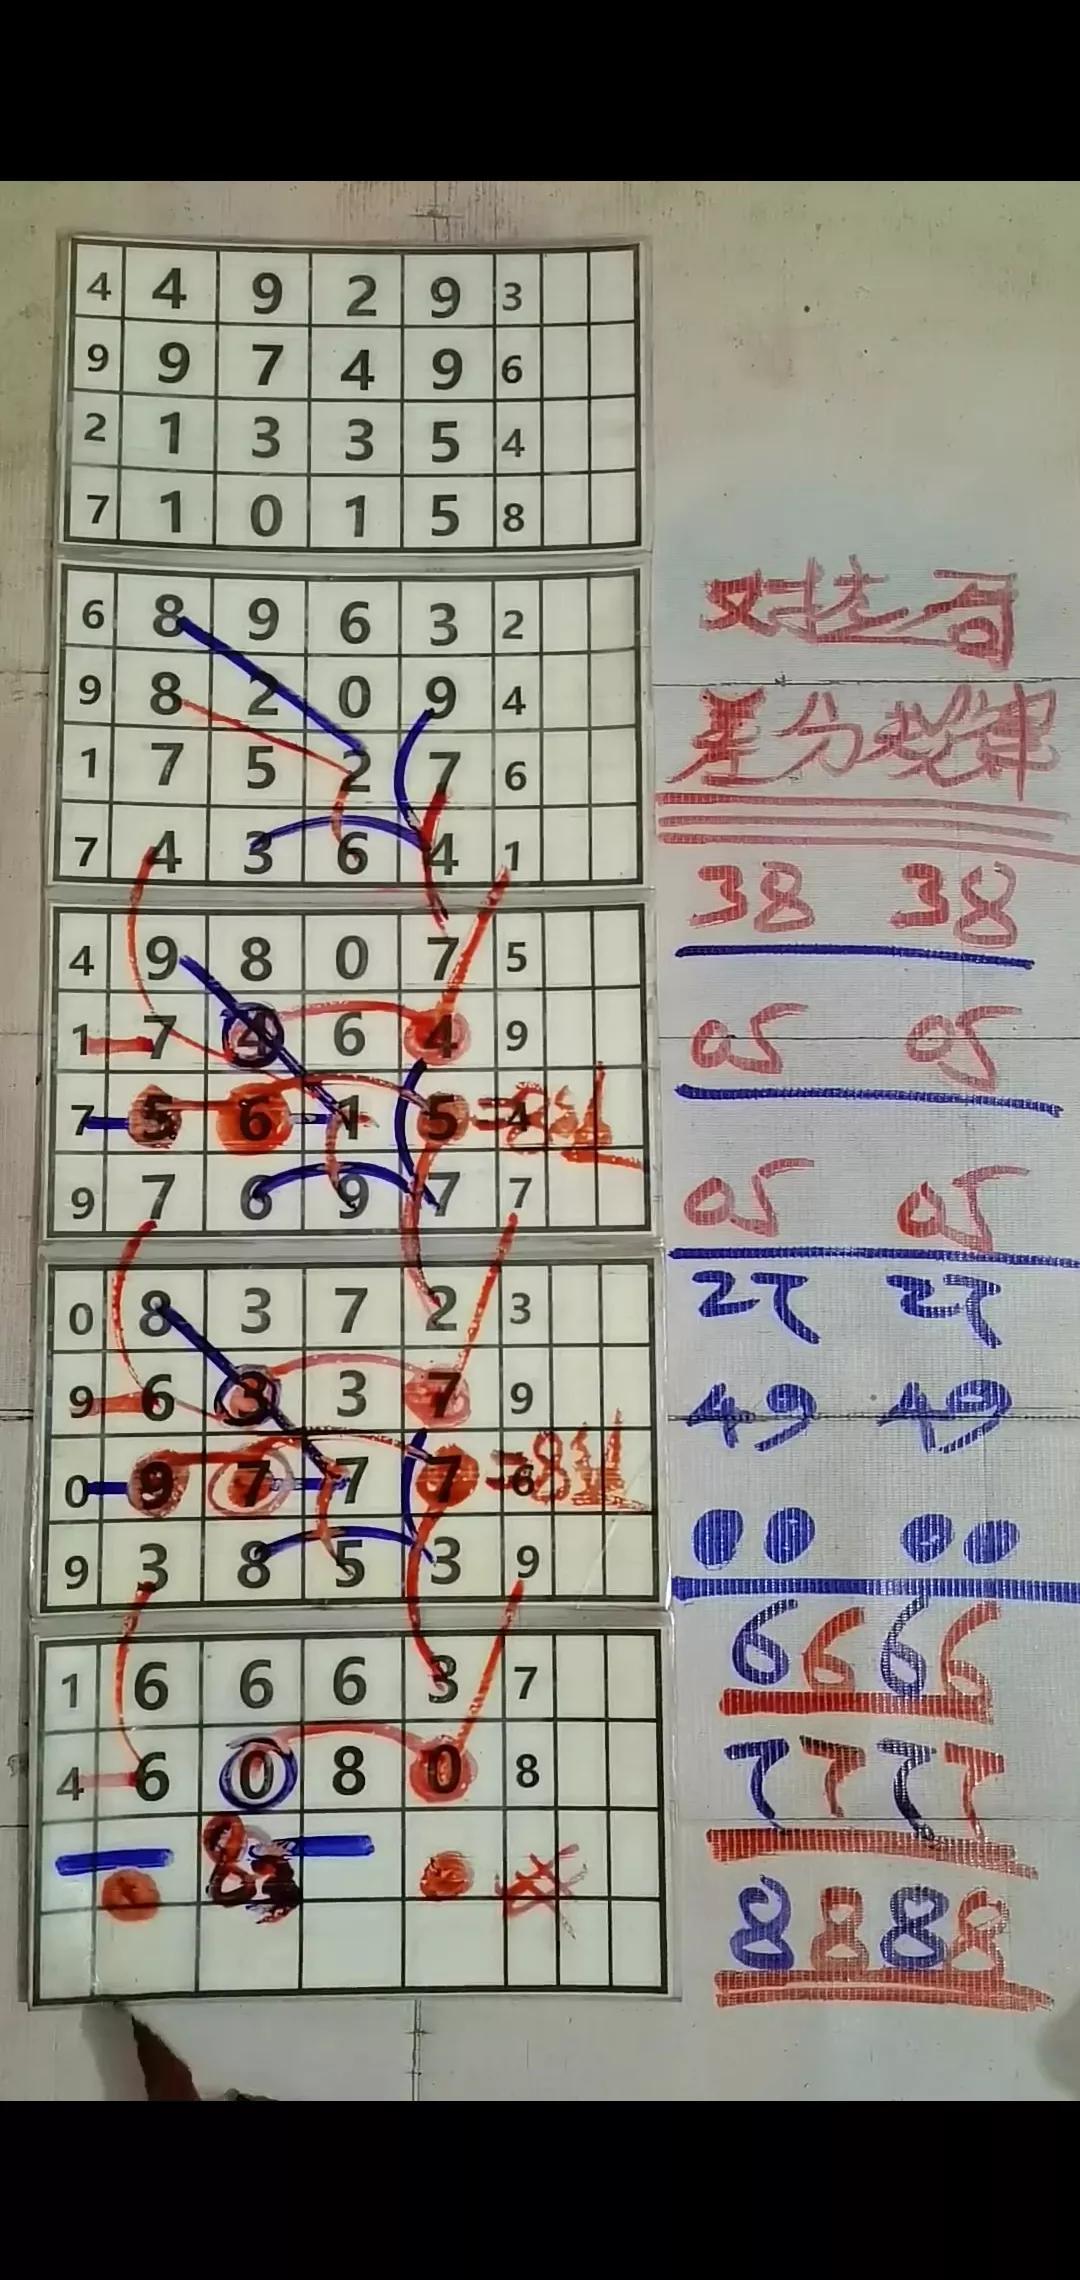 4 4 9 2 9 3
9 9 7 4 9 6
2 1 3 3 5 4
7 1 0 1 5 8
6 8 9 6 3 2
9 8 2 0 9 4
1 7 5 2 7 6
7 4 3 6 4 1
4 9 8 0 7 5
1 7 4 6 4 9
7 5 6 1 5 =4
9 7 6 9 7 7
0 8 3 7 2 3
9 6 3 3 7 9
0 9 7 7 7 =6
9 3 8 5 3 9
1 6 6 6 3 7
4 6 0 8 0 8
差分规律
38 38
05 05
05 05
27 27
49 49
6666
7777
8888